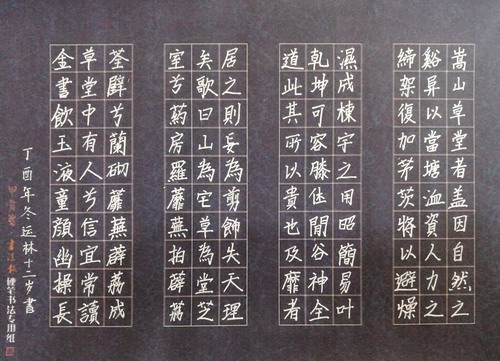 嵩山草堂者盖因自然之
谿昇以當塘洫資人力之
締架復加茅茨將以避燥
濕成棟宇之用昭簡易叶
乾坤可容膝休閒谷神全
道此其所以貴也及靡者
居之則妄為剪飾失天理
矣歌曰山為宅草為堂芝
室兮葯房羅蘼蕪拍薜荔
荃壁兮蘭砌蘼蕪薜荔成
草堂中有人兮信宜常讀
金書飲玉液童顏幽操長
丁酉年冬运林十二岁書
書法报 硬笔书法专用纸